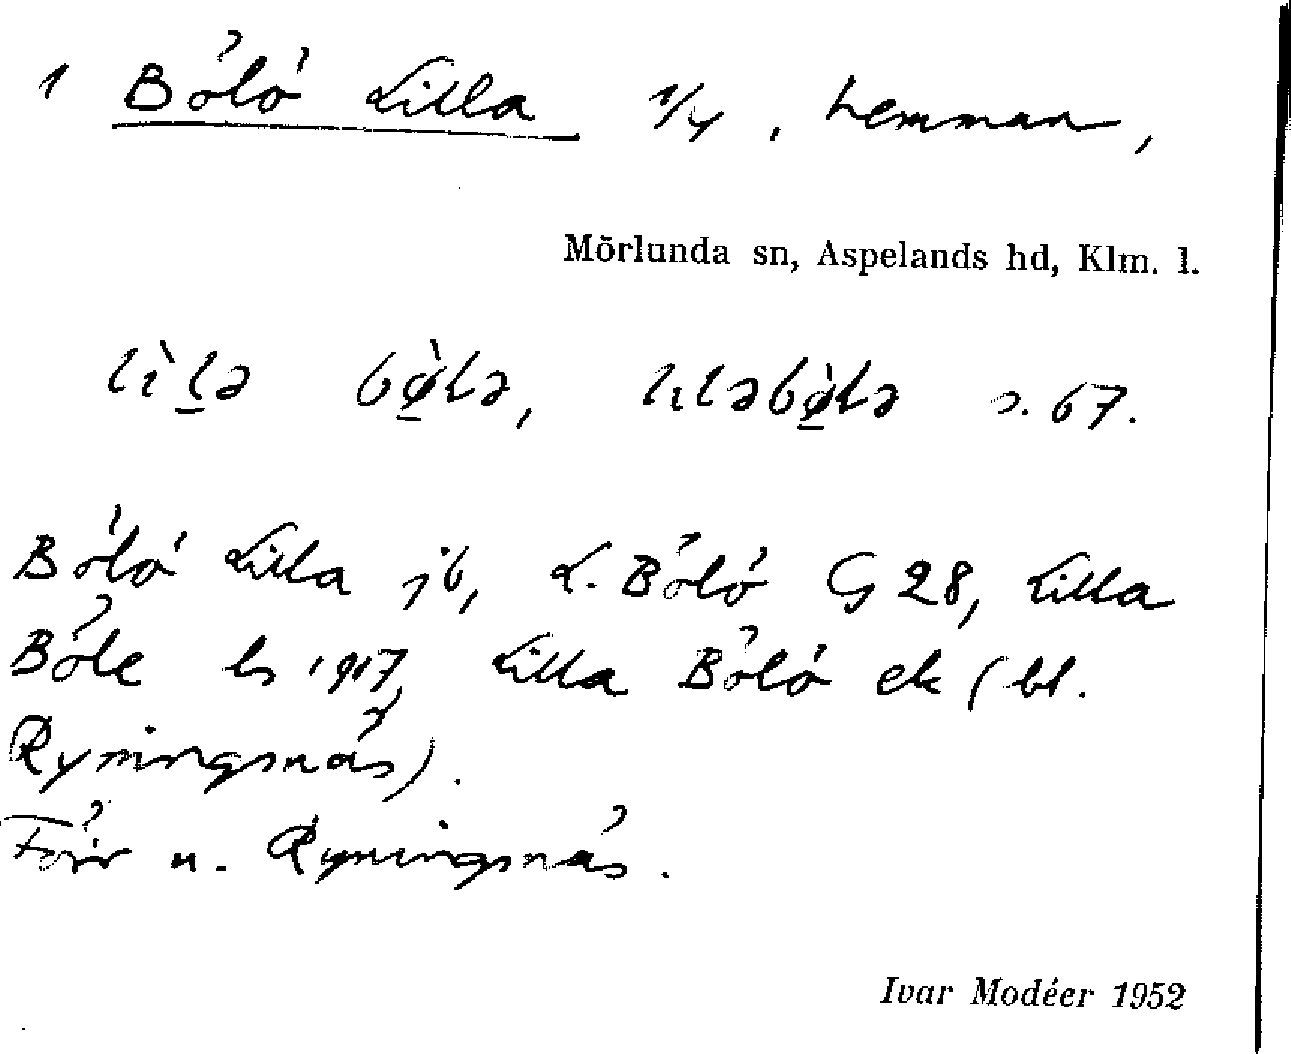 1 Bölö Lilla 1/4, hemman,
Mörlunda sn, Aspelands hd, Klm. l.
lɩ̀l̠ə bø̠̀lə, lɩləbø̠̀lə s. 67.
Bölö Lilla jb, L. Bölö G 28, Lilla
Böle hs 1917, Lilla Bölö ek (bl.
Ryningsnäs).
Förr u. Ryningsnäs.
Ivar Modéer 1952